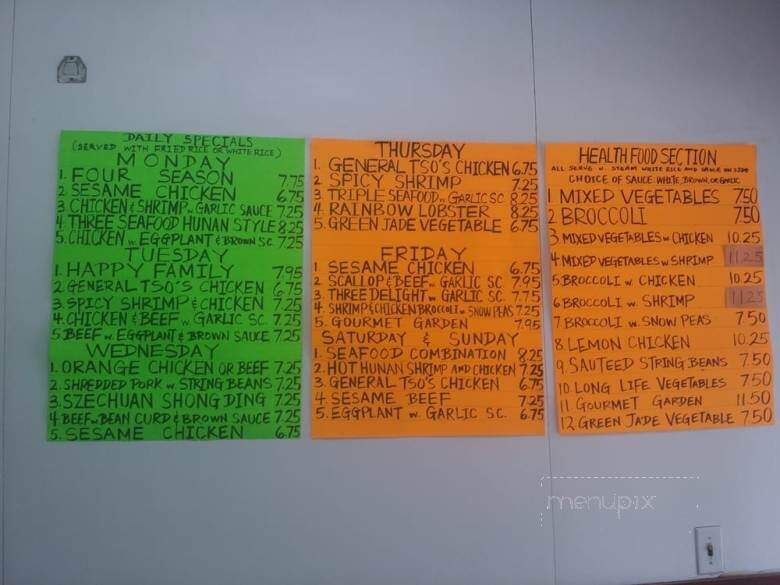 DAILY SPECIALS
(SERVED WITH FRIED RICE OR WHITE RICE)
MONDAY
1. FOUR SEASON 7.75
2 SESAME CHICKEN 6.75
3 CHICKEN & SHRIMP w. GARLIC SAUCE 7.25
4. THREE SEAFOOD HUNAN STYLE 8.25
5. CHICKEN w. EGGPLANT & BROWN SC. 7.25
TUESDAY
1. HAPPY FAMILY 7.95
2. GENERAL TSO'S CHICKEN 6.75
3. SPICY SHRIMP & CHICKEN 7.25
4. CHICKEN & BEEF w. GARLIC SC. 7.25
5. BEEF w. EGGPLANT & BROWN SAUCE 7.25
WEDNESDAY
1. ORANGE CHICKEN OR BEEF 7.25
2. SHREDDED PORK w. STRING BEANS 7.25
3. SZECHUAN SHONG DING 7.25
4. BEEF w. BEAN CURD & BROWN SAUCE 7.25
5. SESAME CHICKEN 6.75
THURSDAY
1. GENERAL TSO'S CHICKEN 6.75
2. SPICY SHRIMP 7.25
3. TRIPLE SEAFOOD w. GARLIC SC 8.25
4. RAINBOW LOBSTER 8.25
5. GREEN JADE VEGETABLE 6.75
FRIDAY
1. SESAME CHICKEN 6.75
2. SCALLOP & BEEF w. GARLIC SC. 7.95
3. THREE DELIGHT w. GARLIC SC. 7.75
4. SHRIMP & CHICKEN BROCCOLI w. SNOW PEAS 7.25
5. GOURMET GARDEN 7.95
SATURDAY & SUNDAY
1. SEAFOOD COMBINATION 8.25
2. HOT HUNAN SHRIMP AND CHICKEN 7.25
3. GENERAL TSO'S CHICKEN 6.75
4. SESAME BEEF 7.25
5. EGGPLANT w. GARLIC SC. 6.75
HEALTH FOOD SECTION
ALL SERVE w. STEAM WHITE RICE AND SAUCE ON SIDE
CHOICE OF SAUCE: WHITE, BROWN, OR GARLIC
1 MIXED VEGETABLES 7.50
2 BROCCOLI 7.50
3 MIXED VEGETABLES w. CHICKEN 10.25
4 MIXED VEGETABLES w. SHRIMP 11.25
5 BROCCOLI w. CHICKEN 10.25
6 BROCCOLI w. SHRIMP 11.25
7 BROCCOLI w. SNOW PEAS 7.50
8 LEMON CHICKEN 10.25
9. SAUTEED STRING BEANS 7.50
10. LONG LIFE VEGETABLES 7.50
11 GOURMET GARDEN 11.50
12 GREEN JADE VEGETABLE 7.50
menupix